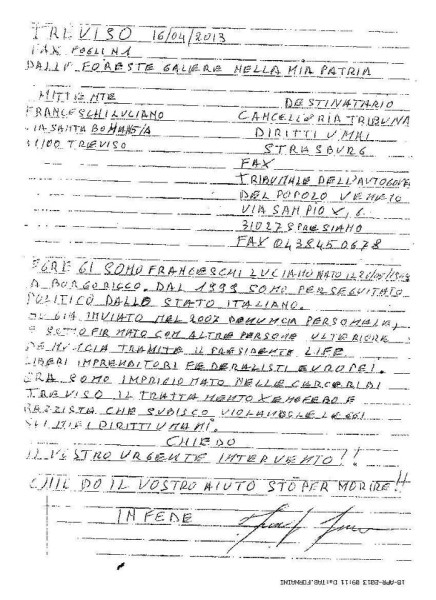 TREVISO 16/04/2013
FAX POGLINA
DALLE FORESTE GALERE NELLA MIA PATRIA
MITTENTE
FRANCESCHI LUCIANO
VIA SANTA BONA 5/A
31100 TREVISO
DESTINATARIO
CANCELLERIA TRIBUNA
DIRITTI UMAI
STRASBURG
FAX
TRIBUNALE DELL'AUTOGOVE
DEL POPOLO VENETO
VIA SAN PIO X, 6
31027 SPRESIANO
FAX 0438450678
SONO FRANCESCHI LUCIANO NATO IL
A BORGORICCO. DAL 1999 SONO PERSEGUITATO
POLITICO DALLO STATO ITALIANO.
GIÀ INVIATO NEL 2007 DENUNCIA PERSONALE,
SOTTOFIRMATO CON ALTRE PERSONE ULTERIORE
DENUNCIA TRAMITE IL PRESIDENTE LIFE
LIBERI IMPRENDITORI FEDERALISTI EUROPEI.
ORA SONO IMPRIGIONATO NELLE CARCERI DI
TREVISO IL TRATTAMENTO XENOFERO E
RAZZISTA CHE SUBISCO VIOLANO LE LEGGI
MIEI DIRITTI UMANI.
CHIEDO
IL VOSTRO URGENTE INTERVENTO!!
CHIEDO IL VOSTRO AIUTO STO PER MORIRE!!
IN FEDE
18-APR-2013 09:11